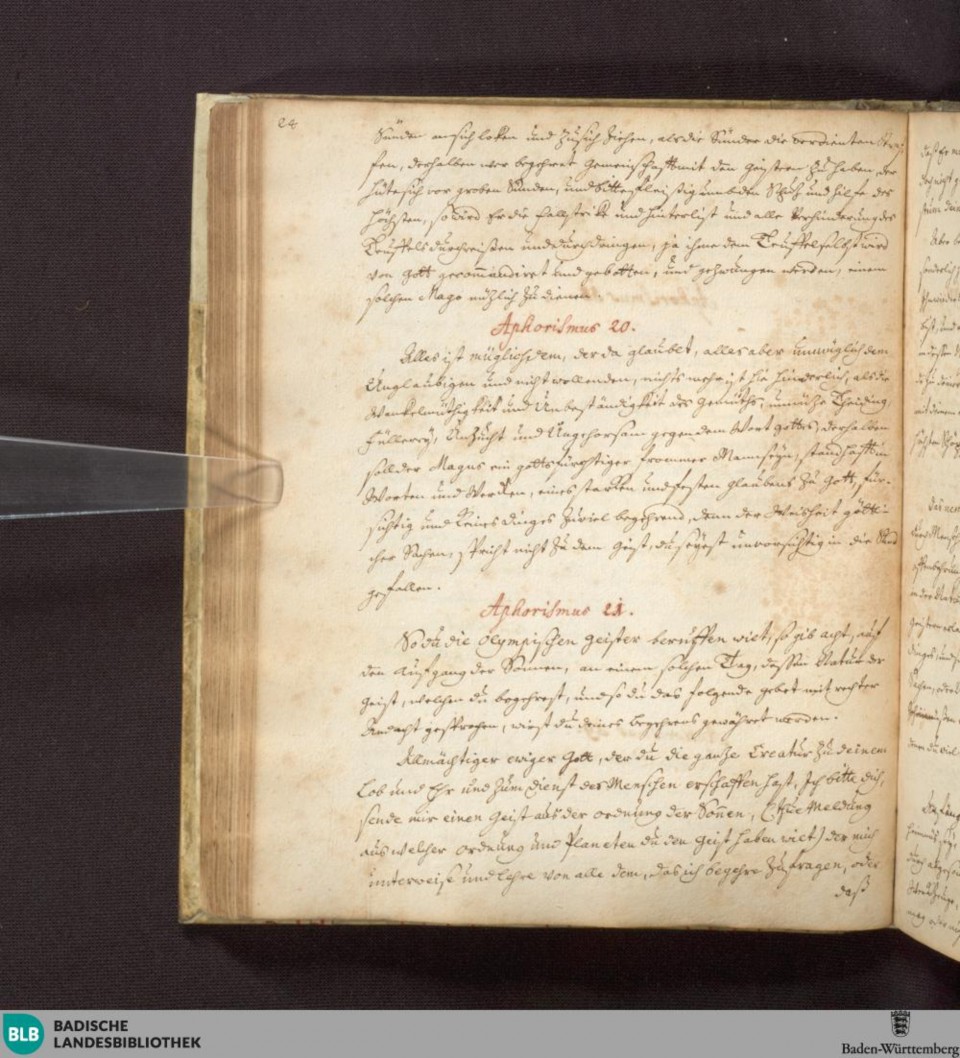 24
Sünden an sich loken und zu sich ziehen, als die Sünder die verdienten
fen, derhalben wer begehret Gemeinschafft mit den Geistern zu haben, der
hüte sich vor groben Sünden, und bitte fleißig umb den Schuz und hilfe des
höchsten, so wird Er die fallstrike und hinterlist und alle Verhinderung des
Teuffels durchreißen und durchdringen, ja ihme dem Teuffel selbst wird
von Gott gecommandiret und gebotten, und gezwungen werden, einem
solchen Mago nüzlich zu dienen
Aphorismus 20.
Alles ist müglich dem, der da glaubet, alles aber unmüglich dem
Unglaubigen und nicht wollenden, nichts mehr ist hie hinderlich, als die
Wankelmüthigkeit und Unbeständigkeit des Gemüths, unnüze
Füllerey, Unzucht und Ungehorsam gegen dem Wort Gottes, derhalben
soll der Magus ein gottsfürchtiger frommer Mann seyn, standhafft in
Worten und Werken, eines starken und festen glaubens zu Gott, für-
sichtig und keines dinges zuviel begehrend, denn der Weisheit göttli-
cher Sachen, spricht nicht zu dem Geist, du seyest unvorsichtig in die
gefallen.
Aphorismus 21.
So du die Olympischen Geister beruffen wilt, so gib acht, auf
den Aufgang der Sonnen, an einem solchen Tag, dessen Natur der
Geist, welchen du begehrest, und so du das folgende gebet mit rechter
Andacht gesprochen, wirst du deines begehrens gewähret werden.
Allmächtiger ewiger Gott, der du die ganze Creatur zu deinem
Lob und Ehr und zum dienst der Menschen erschaffen hast, Ich bitte dich,
sende mir einen Geist aus der ordnung der Sonnen, (thue Meldung
aus welcher ordnung und Planeten du den Geist haben wilt) der mich
unterweise und lehre von alle dem, das ich begehre zu fragen, oder
daß
BLB
BADISCHE
LANDESBIBLIOTHEK
Baden-Württemberg